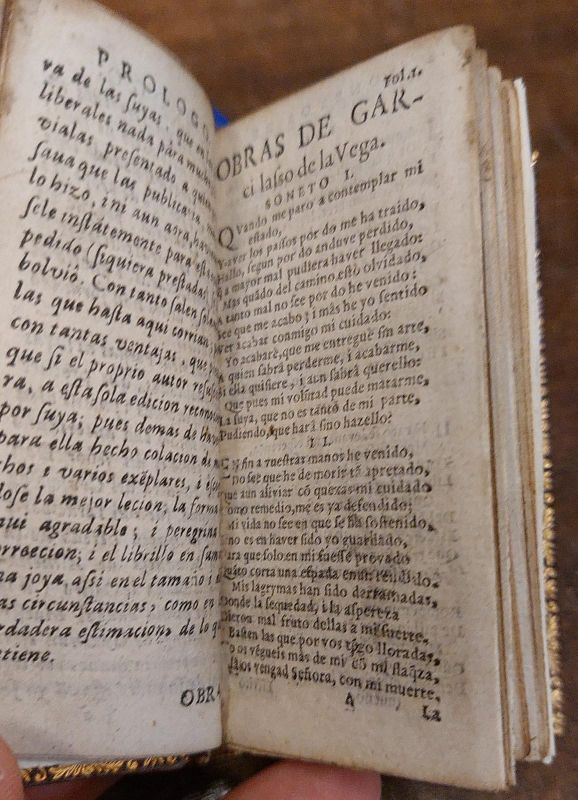 PROLOGO
ra de las suyas, que en
liberales nada para
vialas presentado a
saua que las publicara,
lo hizo, i ni aun aora,
sele instátemente para
pedido (siquiera prestadas)
bolvió. Con tanto salen
las que hasta aqui corrian,
con tantas ventajas, que
que si el proprio autor
ra, a esta sola edicion
por suya; pues demas de
para ella hecho colacion de
chos i varios exẽplares, i
dose la mejor lecion, la forma
qui agradable; i peregrina
orreccion; i el librillo en
na joya, assi en el tamaño i
as circunstancias, como en
rdadera estimacion, de lo
tiene.
OBRA
Fol.1.
OBRAS DE GAR-
ci lasso de la Vega.
SONETO I.
QVando me paro a contemplar mi
estado,
I a ver los passos por do me ha traido,
Hallo, segun por do anduve perdido,
Q̃ a mayor mal pudiera haver llegado:
Mas quãdo del camino estò olvidado,
A tanto mal no see por do he venido:
See que me acabo; i mas he yo sentido
Ver acabar conmigo mi cuidado.
Yo acabarè, que me entreguè sin arte,
A quien sabrà perderme, i acabarme,
Si ella quisiere, i aun sabrà querello:
Que pues mi volũtad puede matarme,
La suya, que no es tanto de mi parte,
Pudiendo, que harà sino hazello?
II.
EN fin a vuestras manos he venido,
Do see que he de morir tã apretado,
Que aun aliviar cõ quexas mi cuidado
Como remedio, me es ya defendido;
Mi vida no see en que se ha sostenido,
Si no es en haver sido yo guardado,
Para que solo en mi fuesse provado
Quãto corta una espada en un rendido.
Mis lagrymas han sido derramadas,
Donde la sequedad, i la aspereza
Dieron mal fruto dellas a mi suerte.
Basten las que por vos tẽgo lloradas,
No os vẽgueis mas de mi cõ mi flaq̃za,
Allà os vengad Señora, con mi muerte.
A
La